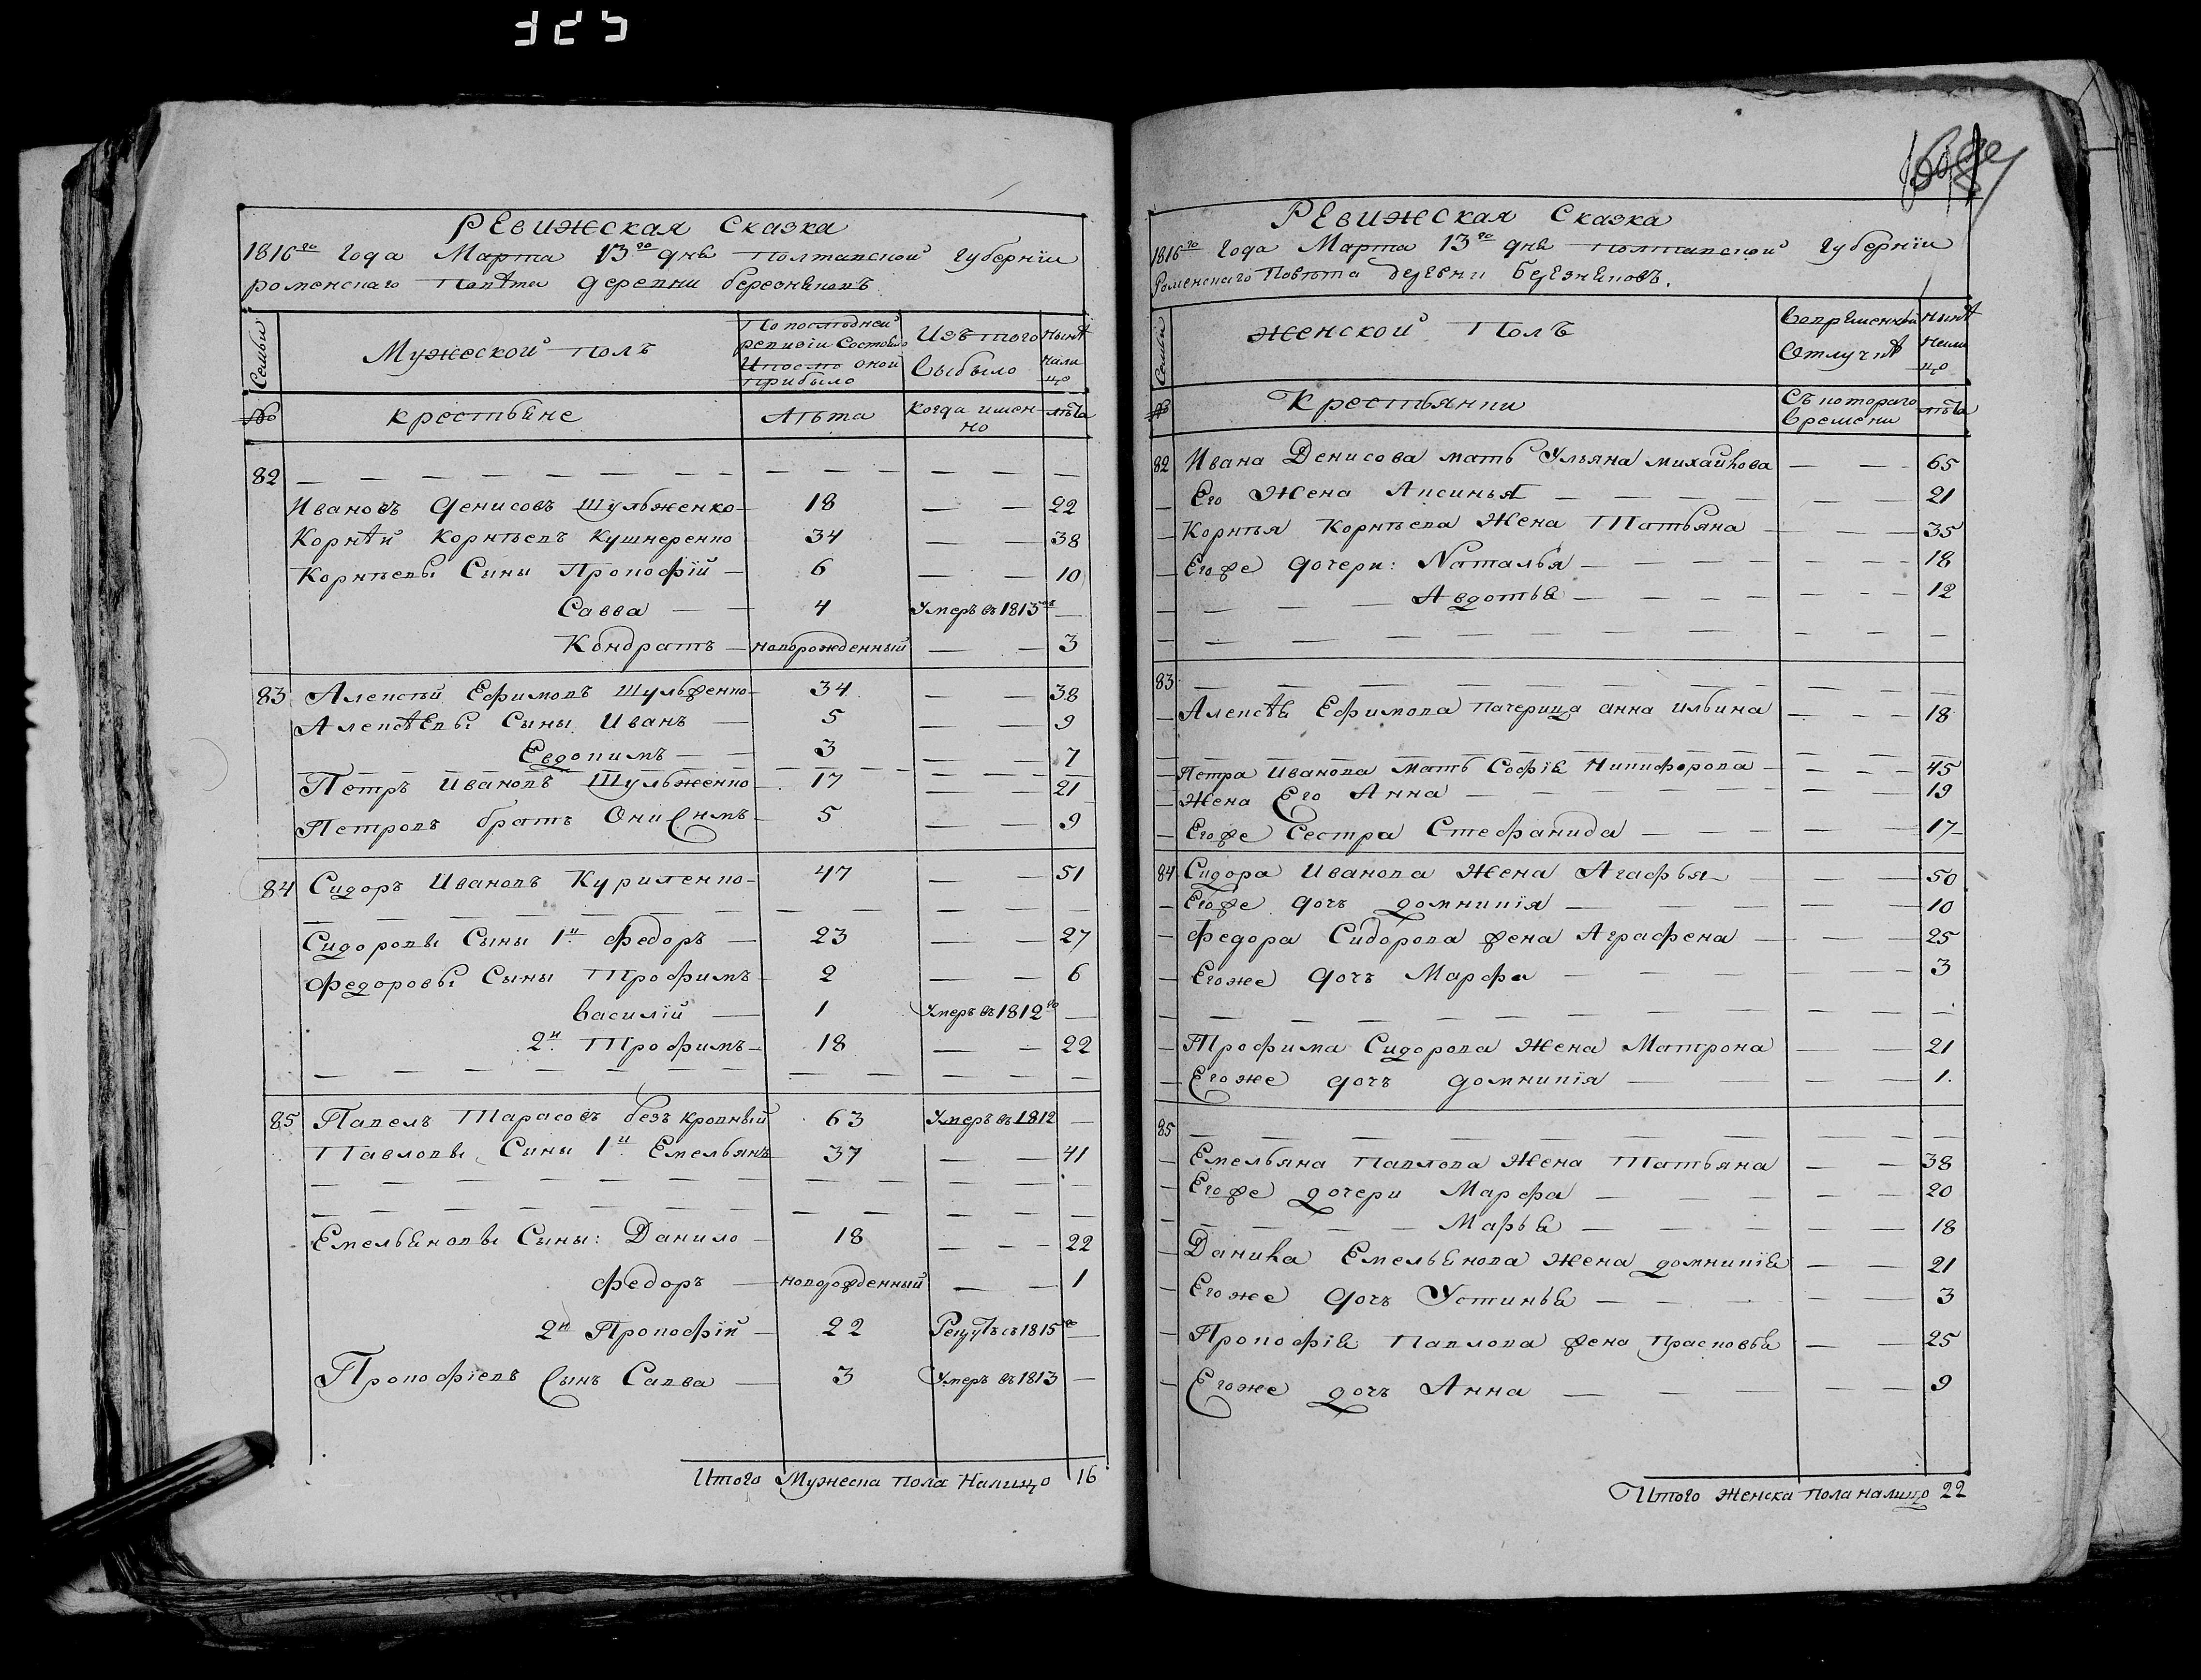 325
Ревижская Сказка
1816го года Марта 13го дня Полтавской Губернїи
роменскаго Повѣта деревни березняковъ
Семьи
Мужеской Полъ
По последней ревизїи Состояло И после оной прибыло
Изъ того выбыло
Нынѣ налицо
№
крестьяне
Лѣта
когда именно
лѣта
82
Ивановъ Денисовъ Шульженко 18 22
Корнѣй Корнѣевъ Кушнеренко 34 38
Корнѣевы Сыны Прокофїй 6 10
Савва 4 Умеръ въ 1815мъ
Кондратъ новорожденный 3
83 Алексѣй Ефимовъ Шульженко 34 38
Алексѣевы Сыны Иванъ 5 9
Евдокимъ 3 7
Петръ Ивановъ Шульженко 17 21
Петровъ братъ Онисимъ 5 9
84 Сидоръ Ивановъ Куриленко 47 51
Сидоровы Сыны 1й Федоръ 23 27
Федоровы Сыны Трофимъ 2 6
Василїй 1 Умеръ въ 1812го
2й Трофимъ 18 22
85 Павелъ Тарасовъ безъкровный 63 Умеръ въ 1812
Павловы Сыны 1й Емельянъ 37 41
Емельяновы Сыны: Данило 18 22
Федоръ новорожденный 1
2й Прокофїй 22 1815го
Прокофїевъ Сынъ Савва 3 Умеръ въ 1813
Итого Мужеска пола Налицо 16
Ревижская Сказка
1816го Года Марта 13го дня Полтавской Губернїи
Роменскаго Повѣта деревни березняковъ.
Семьи
Женской Полъ
Во временной Отлучкѣ
Нынѣ налицо
№
Крестьянки
Съ котораго времени
лѣта
82 Ивана Денисова мать Ульяна михайлова 65
Его Жена Аксинья 21
Корнѣя Корнѣева Жена Татьяна 35
Егоже дочери: Наталья 18
Авдотья 12
83
Алексѣя Ефимова пачерица анна ильина 18
Петра Иванова Мать Софїя Никифорова 45
Жена Его Анна 19
Егоже Сестра Стефанида 17
84 Сидора Иванова Жена Агафья 50
Егоже дочь домникїя 10
Федора Сидорова жена Аграфена 25
Егоже дочь Марфа 3
Трофима Сидорова Жена Матрона 21
Егоже дочь домникїя 1.
85
Емельяна Павлова Жена Татьяна 38
Егоже дочери Марфа 20
Марья 18
Данила Емельянова Жена домникїя 21
Егоже дочь Устинья 3
Прокофїя Павлова жена Прасковья 25
Егоже дочь Анна 9
Итого Женска пола налицо 22